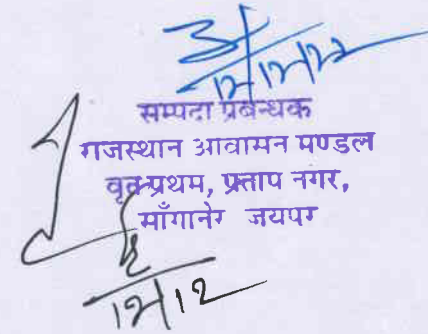 सम्पदा प्रबन्धक
राजस्थान आवासन मण्डल
वृत प्रथम, प्रताप नगर,
साँगानेर जयपुर
12/12